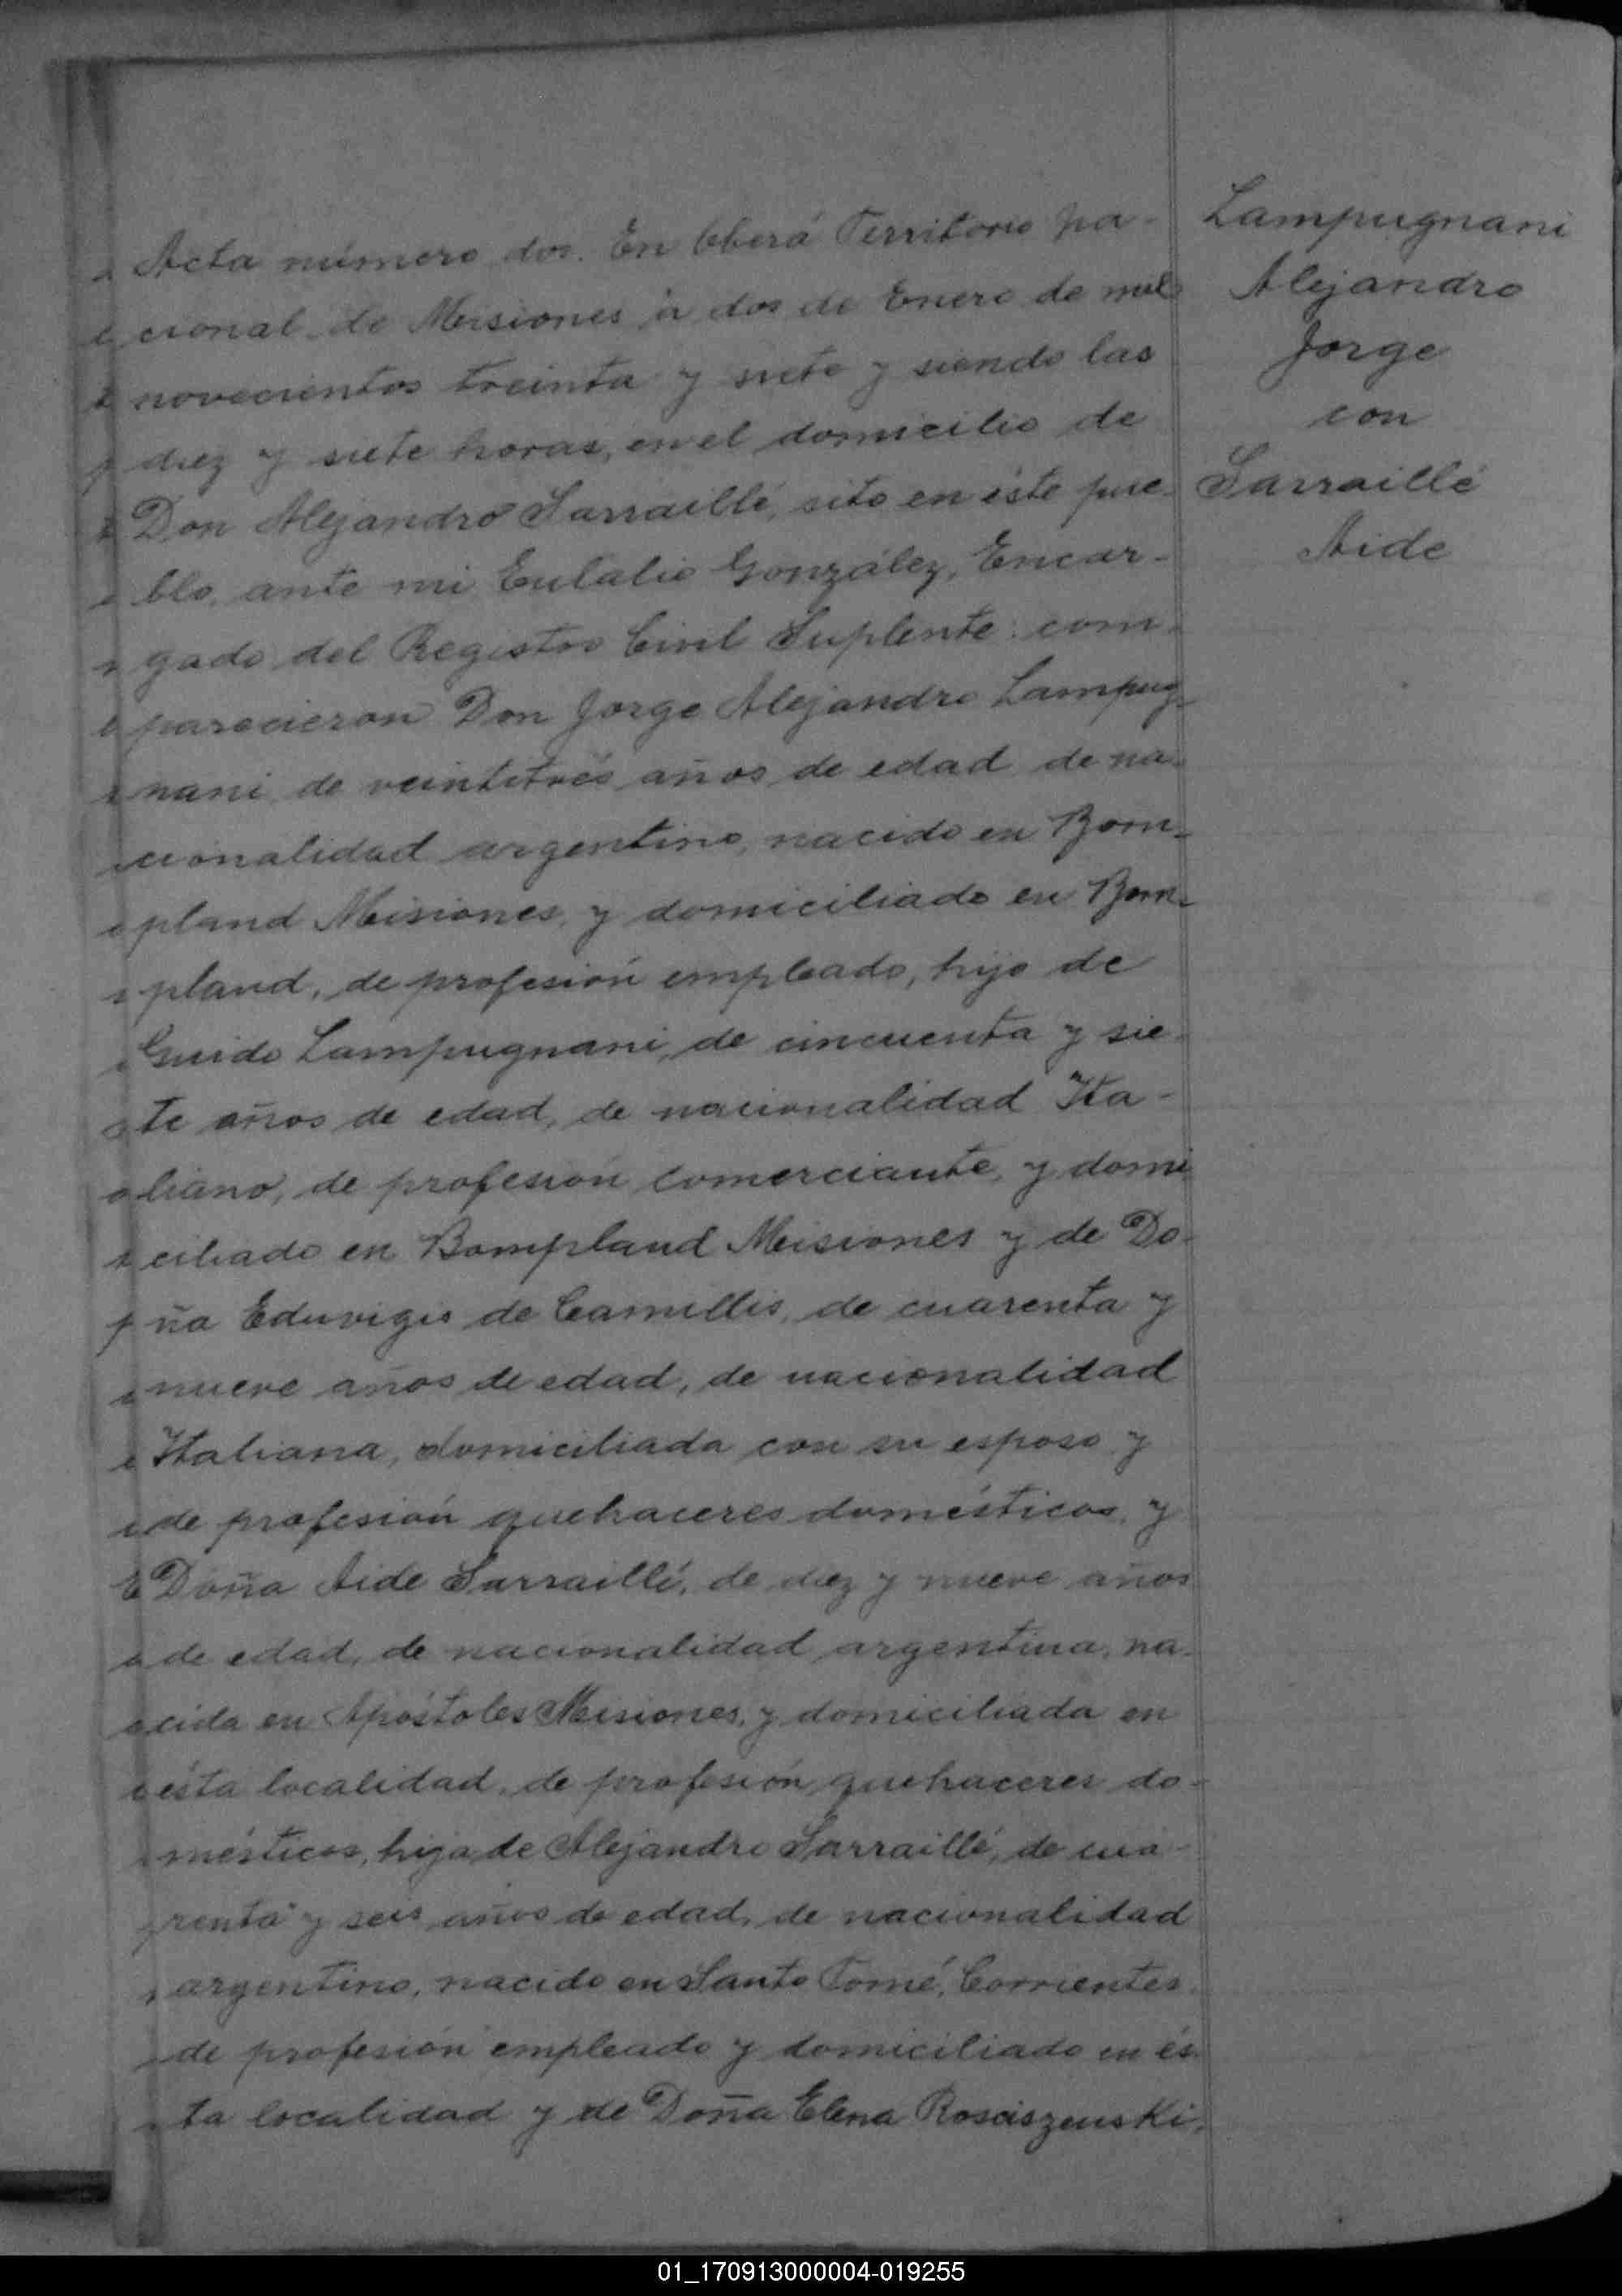 Acta número dos. En Oberá Territorio na-
cional de Misiones á dos de Enero de mil
novecientos treinta y siete y siendo las
diez y siete horas, en el domicilio de
Don Alejandro Sarraillé, sito en éste pue-
blo, ante mi Eulalio González, Encar-
gado del Registro Civil Suplente: com-
parecieron Don Jorge Alejandro Lampug-
nani de veintitrés años de edad de na-
cionalidad argentino, nacido en Bom-
pland Misiones, y domiciliado en Bom-
pland, de profesión empleado, hijo de
Guido Lampugnani, de cincuenta y sie-
te años de edad, de nacionalidad Ita-
liano, de profesión comerciante, y domi-
ciliado en Bompland Misiones y de Do-
ña Eduvigis de Camillis, de cuarenta y
nueve años de edad, de nacionalidad
Italiana, domiciliada con su esposo y
de profesión quehaceres domésticos, y
Doña Aide Sarraillé, de diez y nueve años
de edad, de nacionalidad argentina, na-
cida en Apóstoles Misiones, y domiciliada en
ésta localidad, de profesión quehaceres do-
mésticos, hija de Alejandro Sarraillé, de cua-
renta y seis años de edad, de nacionalidad
argentino, nacido en Santo Tomé, Corrientes
de profesión empleado y domiciliado en és-
ta localidad y de Doña Elena Rosciszewski,
Lampugnani
Alejandro
Jorge
con
Sarraillé
Aide
01_170913000004-019255